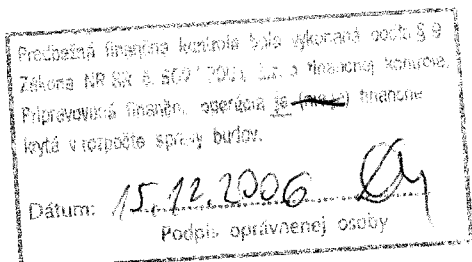 Predbežná finančná kontrola bola vykonaná podľa § 9
Zákona NR SR č. 502/2001 Z.z. o finančnej kontrole.
Pripravovaná finančn. operácia je (nie je) finančne
krytá v rozpočte správy budov.
Dátum: 15.12.2006
Podpis oprávnenej osoby